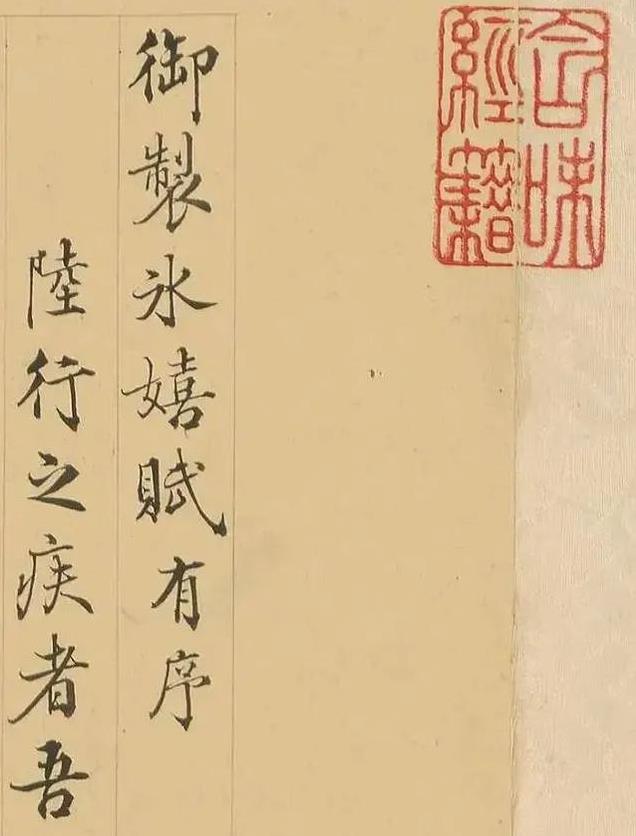 含味
經籍
御製氷嬉賦有序
陸行之疾者吾